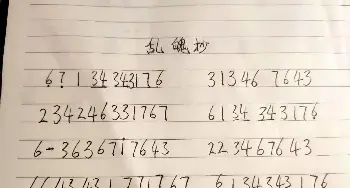 乱魄抄
6 7 1 34 343176 31346 7643
234246331767 6134 343176
6-3636717643 223467643